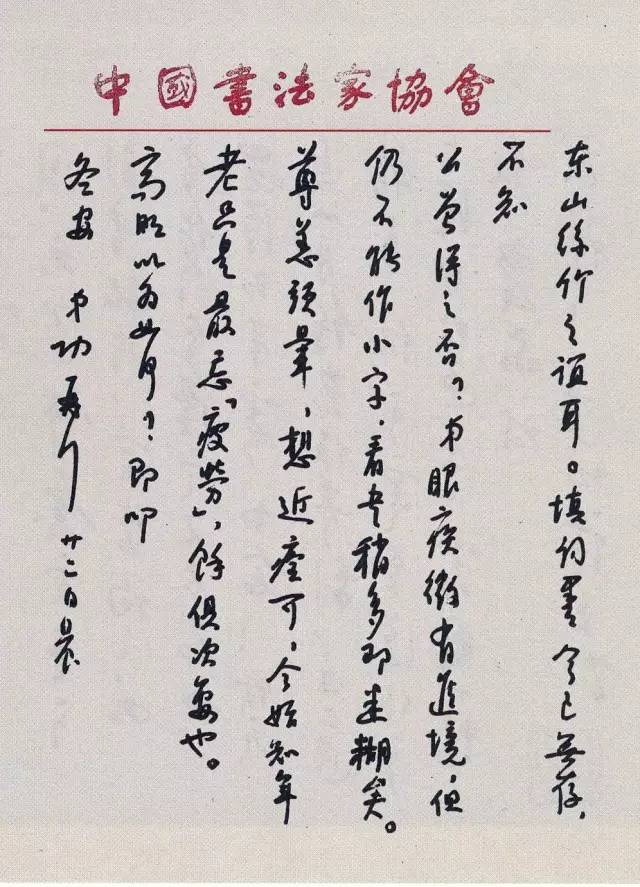 中國書法家協會
东山絲竹之誼耳。填词墨今已無存，
不知
公曾得之否？弟眼疾微有進境，但
仍不能作小字，看书稍多即迷糊矣。
尊恙頭暈，想近痊可，今始知年
老只是最忌「疲勞」，餘俱次要也。
高明以为如何？即叩
冬安 弟功再行 廿二日晨